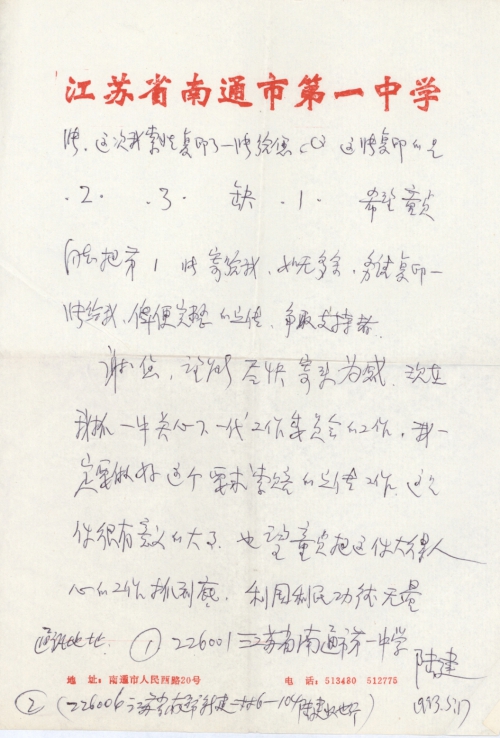 江苏省南通市第一中学
张。这次我索性复印了一张给您 这张复印的是
·2· ·3· 缺 ·1· 希望童贞
同志把第1张寄给我,如无多余,请复印一
张给我,俾便完整的宣传,争取支持者。
谢谢您,尽快寄来为感。现在
我抓一中关心下一代工作委员会的工作,我一
定要做好这个要求的宣传工作。这
件很有意义的大事。也望童贞把这件大得人
心的工作抓到底。利国利民功德无量
通讯地址:①226001江苏省南通市第一中学
陆建
地 址:南通市人民西路20号 电 话:513480 512775
②(226006江苏省南通市新建 6-104陆建
1993.5.17